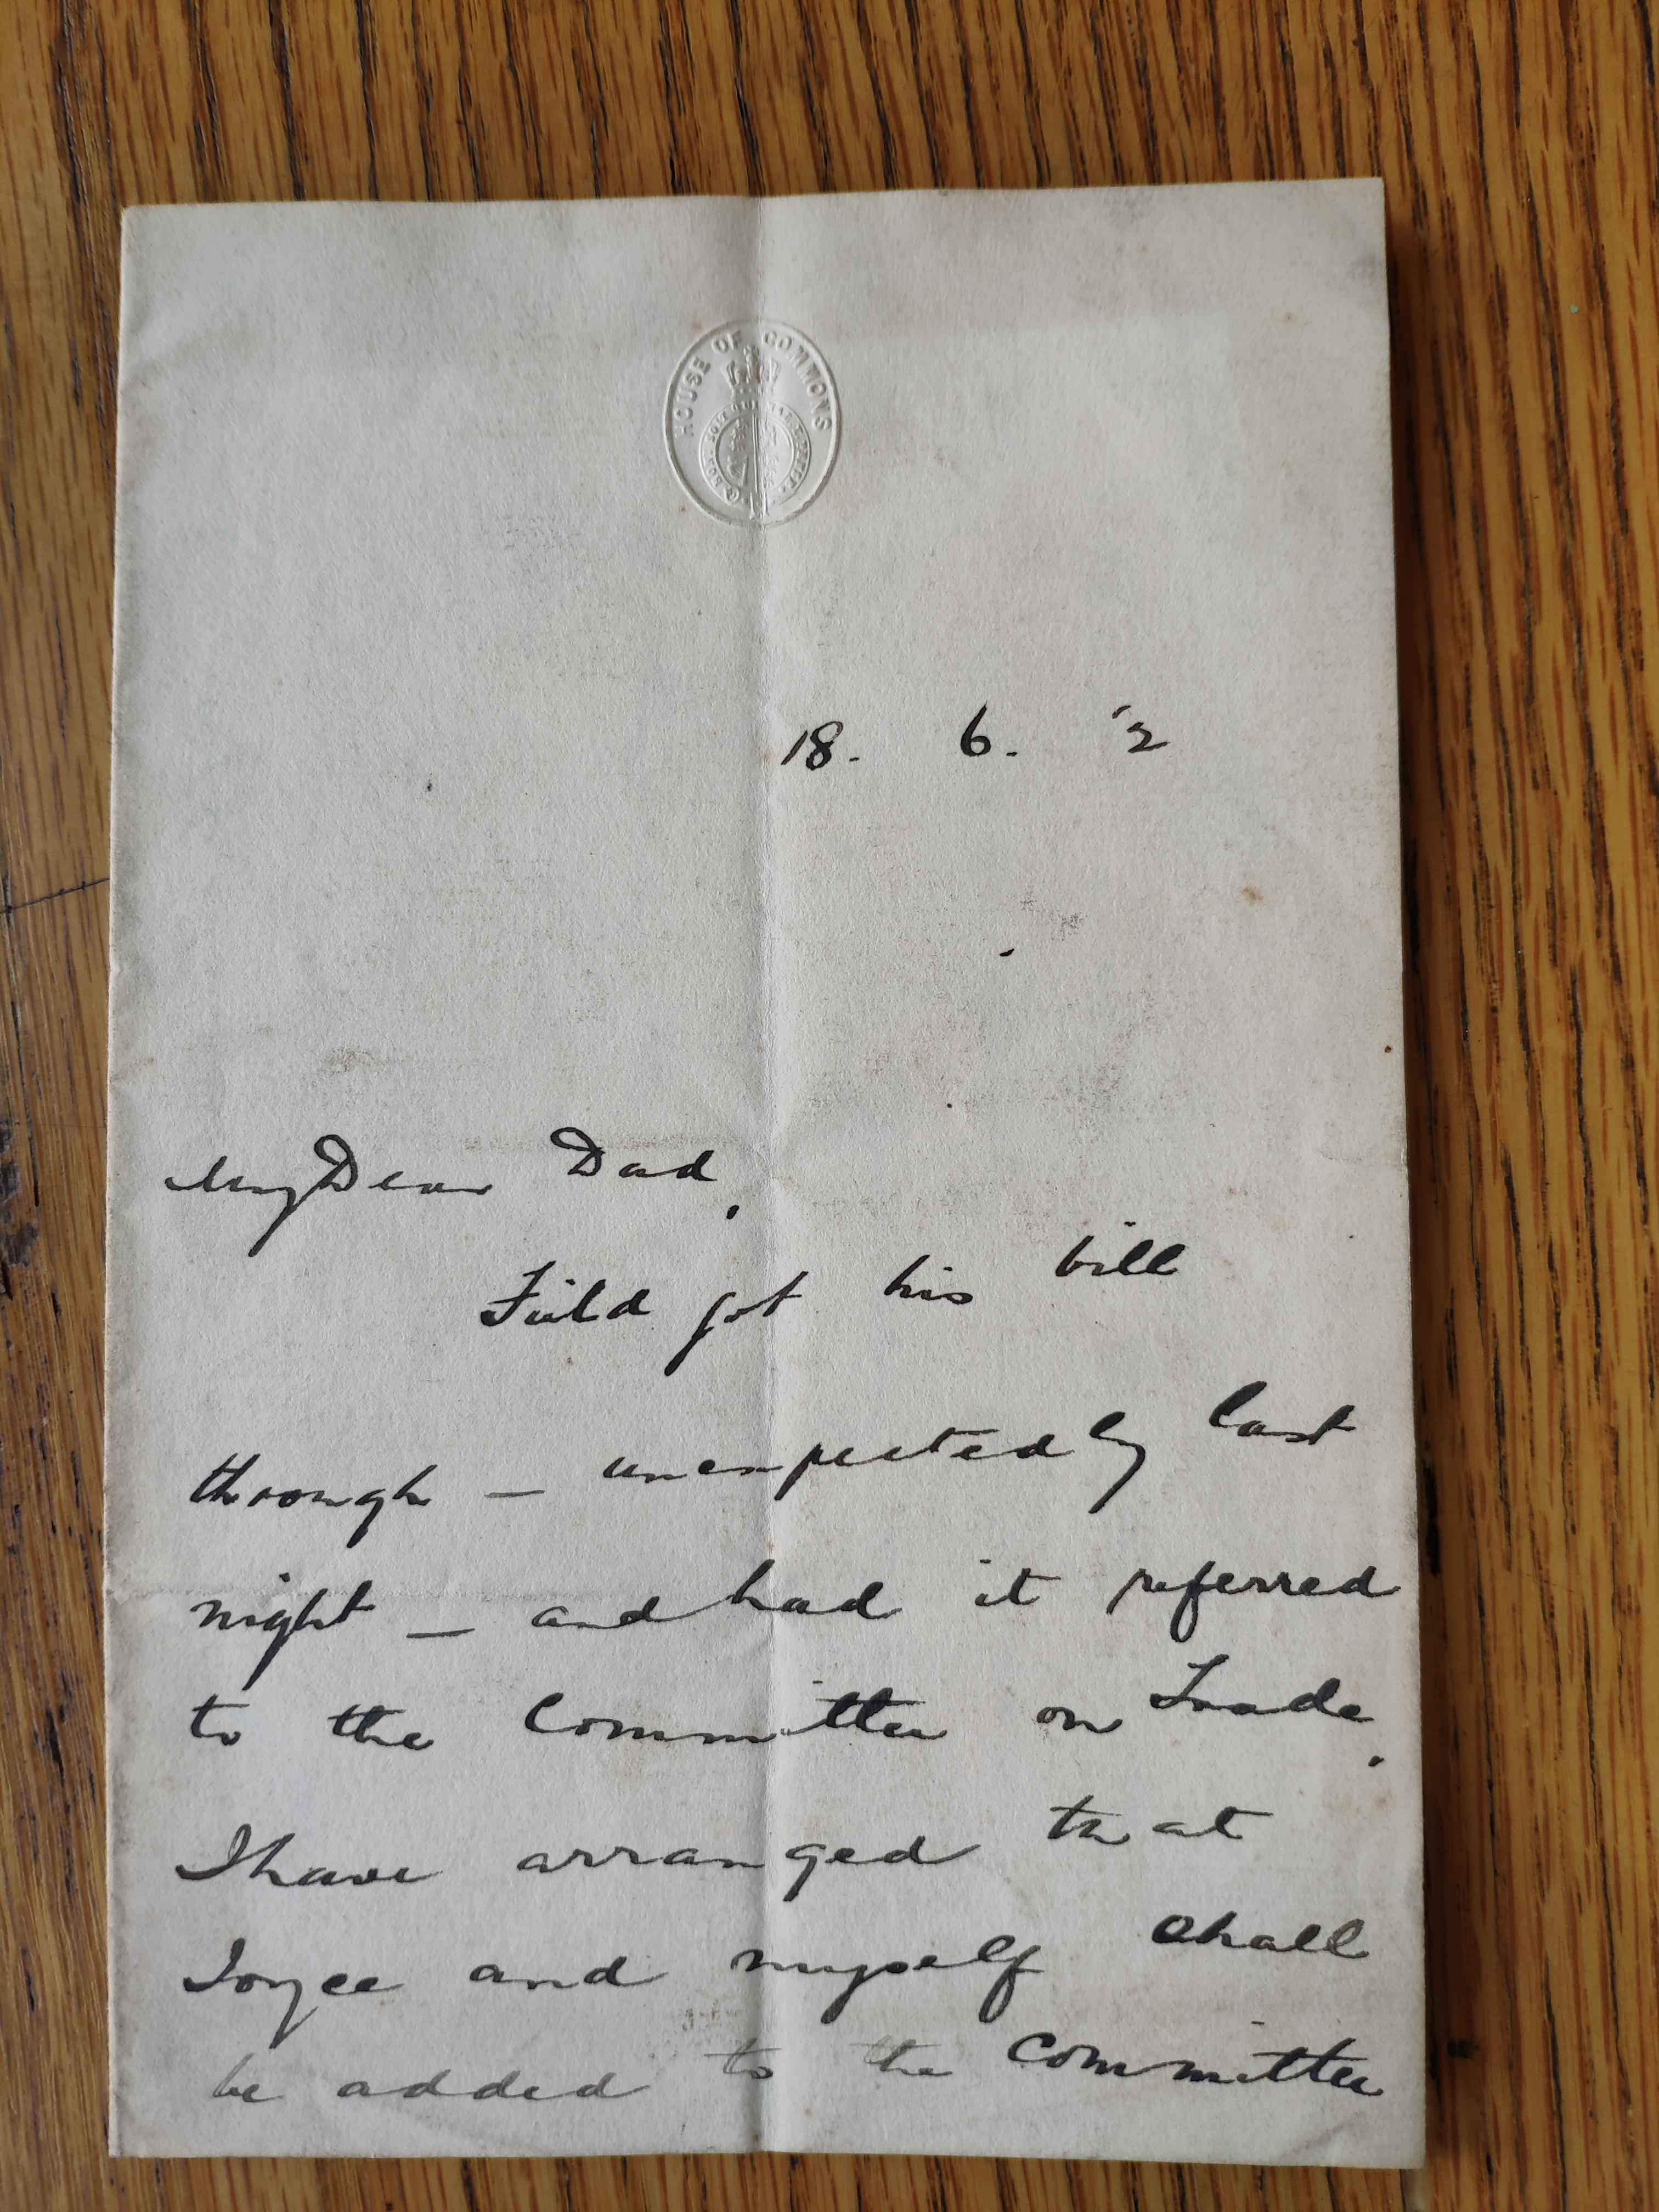 HOUSE OF COMMONS
18. 6. '2
My Dear Dad,
Field got his bill
through — unexpectedly last
night — and had it referred
to the Committee on Trade.
I have arranged that
Joyce and myself shall
be added to the Committee